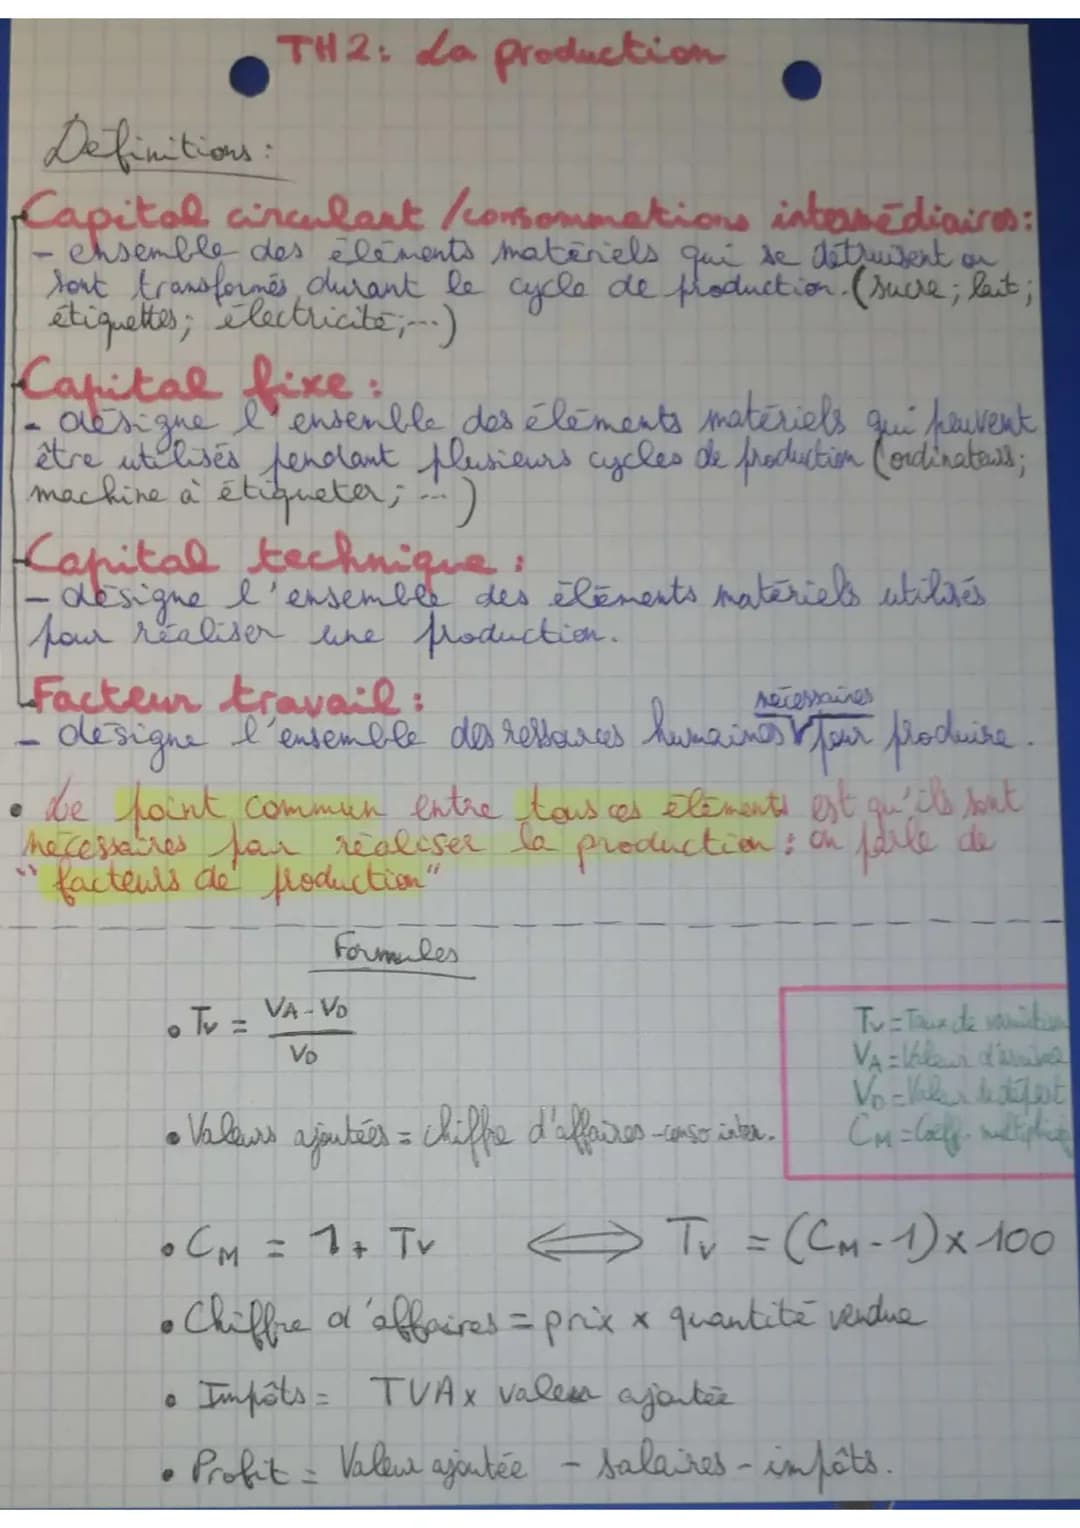 TH 2: La production
Définitions:
Capital circulant / consommations intermédiaires:
- ensemble des éléments matériels qui se détruisent ou
sont transformés durant le cycle de production. (sucre; lait;
étiquettes; électricité;...)
Capital fixe:
- désigne l'ensemble des éléments matériels qui peuvent
être utilisés pendant plusieurs cycles de production (ordinateurs;
machine à étiqueter; ...)
Capital technique:
- désigne l'ensemble des éléments matériels utilisés
pour réaliser une production.
Facteur travail:
nécessaires
- désigne l'ensemble des ressources humaines pour produire.
• Le point commun entre tous ces éléments est qu'ils sont
nécessaires pour réaliser la production: on parle de
"facteurs de production"
Formules
• Tv = VA - VD
VD
Tv = Taux de variation
VA = Valeur d'arrivée
VD = Valeur de départ
CM = Coeff.
• Valeurs ajoutées = chiffre d'affaires - conso inter.
• CM = 1 + Tv ⟺ Tv = (CM - 1) x 100
• Chiffre d'affaires = prix x quantité vendue
• Impôts = TVA x valeur ajoutée
• Profit = Valeur ajoutée - salaires - impôts.